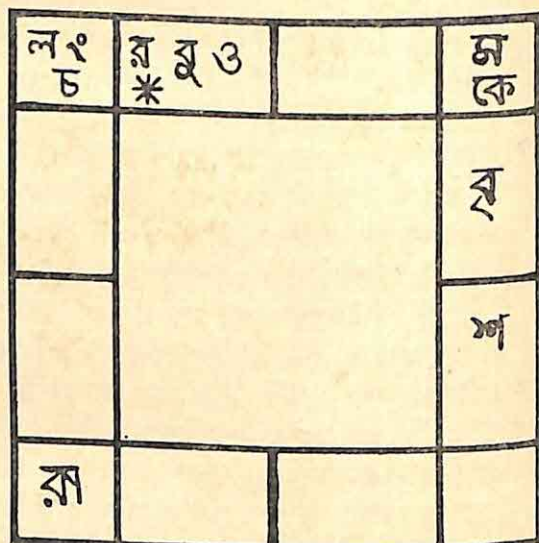 লং
চ
র বু ও
*
ম
কে
বৃ
শ
রা